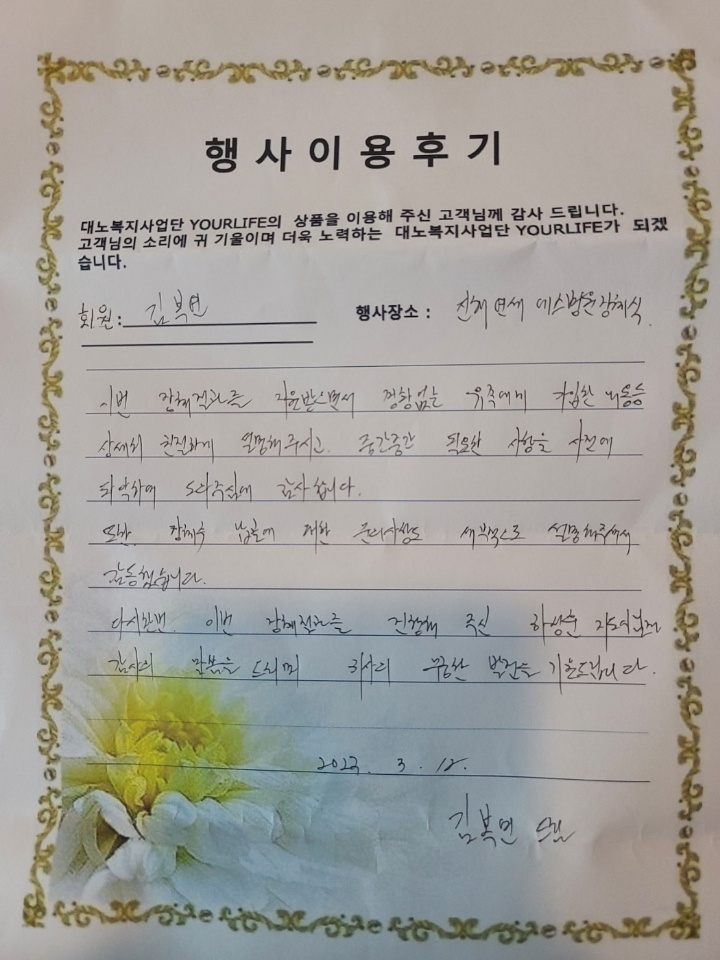 행사이용후기
대노복지사업단 YOURLIFE의 상품을 이용해 주신 고객님께 감사 드립니다.
고객님의 소리에 귀 기울이며 더욱 노력하는 대노복지사업단 YOURLIFE가 되겠
습니다.
회원 : 김복면
행사장소 : 연세 장례식
이번 장례절차를 지원받으면서 경황없는 유족에게 가입한 내용을
상세히 친절하게 설명해주시고. 중간중간 필요한 사항을 사전에
파악하여 도와주심에 감사합니다.
또한 장례후 납골에 대한 문의사항도 세부적으로 설명해주셔서
감동했습니다.
다시한번 이번 장례절차를 진행해 주신 하상훈 지도사님께
감사의 말씀을 드리며 회사의 무궁한 발전을 기원드립니다.
3. 12.
김복면 드림